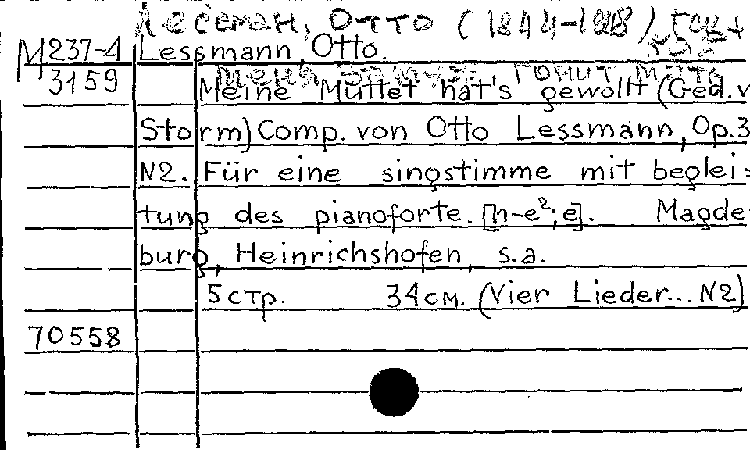 Лессман, Отто (1844-1918)
М 237-4 Lessmann, Otto.
3159 Меня
Meine Mutter hat's gewollt (Ged. v
Storm) Comp. von Otto Lessmann, Op. 3
N2. Für eine singstimme mit beglei=
tung des pianoforte. [h-e²; e]. Magde-
burg, Heinrichshofen, s.a.
5 стр. 34 см. (Vier Lieder... N2)
70558